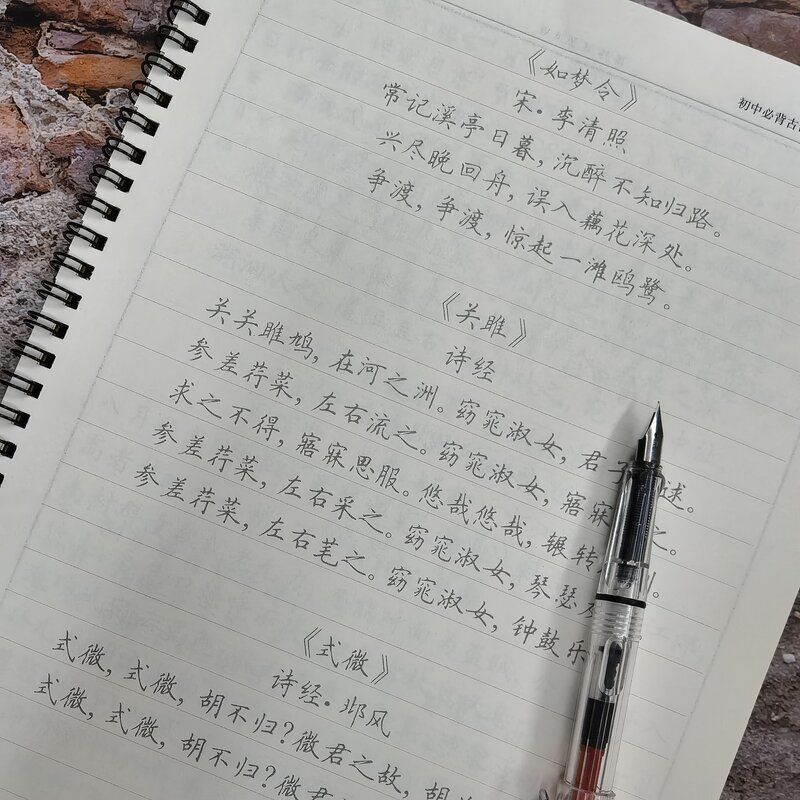 初中必背古
《如梦令》
宋·李清照
常记溪亭日暮，沉醉不知归路。
兴尽晚回舟，误入藕花深处。
争渡，争渡，惊起一滩鸥鹭。
《关雎》
诗经
关关雎鸠，在河之洲。窈窕淑女，君子 逑。
参差荇菜，左右流之。窈窕淑女，寤寐 之。
求之不得，寤寐思服。悠哉悠哉，辗转
参差荇菜，左右采之。窈窕淑女，琴瑟
参差荇菜，左右芼之。窈窕淑女，钟鼓乐
《式微》
诗经·邶风
式微，式微，胡不归？微君之故，胡
式微，式微，胡不归？微君